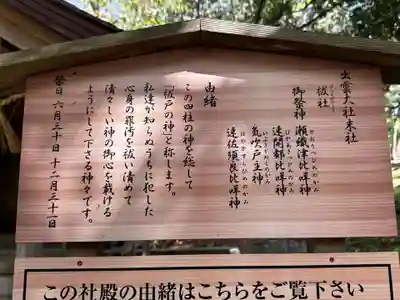 出雲大社末社
祓社
御祭神
瀬織津比咩神
速開都比咩神
気吹戸主神
速佐須良比咩神
由緒
この四柱の神を総して
「祓戸の神」と称します。
私達が知らぬうちに犯した
心身の罪汚を祓い清めて
清々しい神の御心を戴ける
ようにして下さる神々です。
祭日 六月三十日 十二月三十一日
この社殿の由緒はこちらをご覧下さい